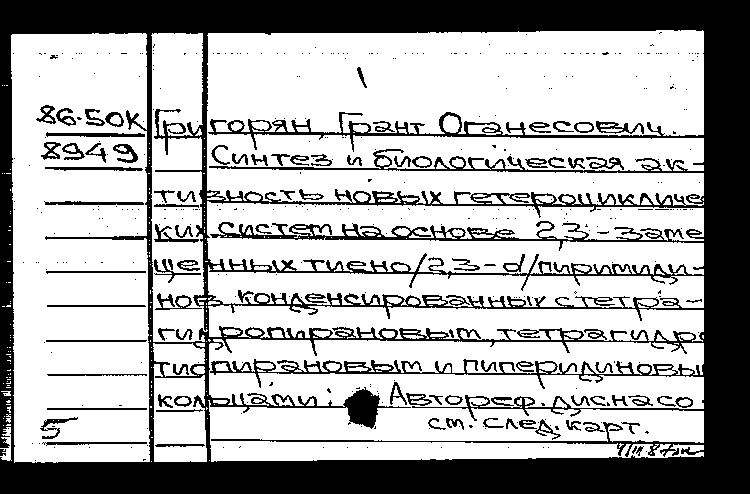 86-50К Григорян, Грант Оганесович.
8949 Синтез и биологическая ак-
тивность новых гетероцикличе
ких систем на основе 2,3-заме
щенных тиено/2,3-d/пиримиди-
нов, конденсированных с тетра-
гидропирановым, тетрагидро
тиопирановым и пиперидиновы
кольцами: Автореф. дис. на со
5 см. след. карт.